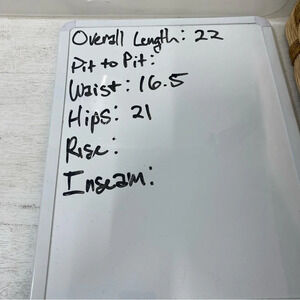 Overall Length: 22
Pit to Pit:
Waist: 16.5
Hips: 21
Rise:
Inseam: